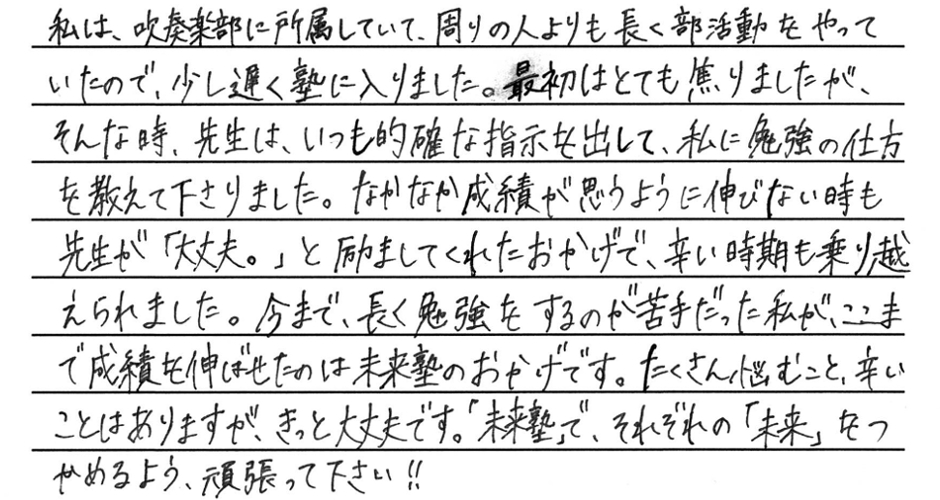 私は、吹奏楽部に所属していて、周りの人よりも長く部活動をやって
いたので、少し遅く塾に入りました。最初はとても焦りましたが、
そんな時、先生は、いつも的確な指示を出して、私に勉強の仕方
を教えて下さりました。なかなか成績が思うように伸びない時も
先生が「大丈夫。」と励ましてくれたおかげで、辛い時期も乗り越
えられました。今まで、長く勉強をするのが苦手だった私が、ここま
で成績を伸ばせたのは未来塾のおかげです。たくさん悩むこと、辛い
ことはありますが、きっと大丈夫です。「未来塾」で、それぞれの「未来」をつ
かめるよう、頑張って下さい!!